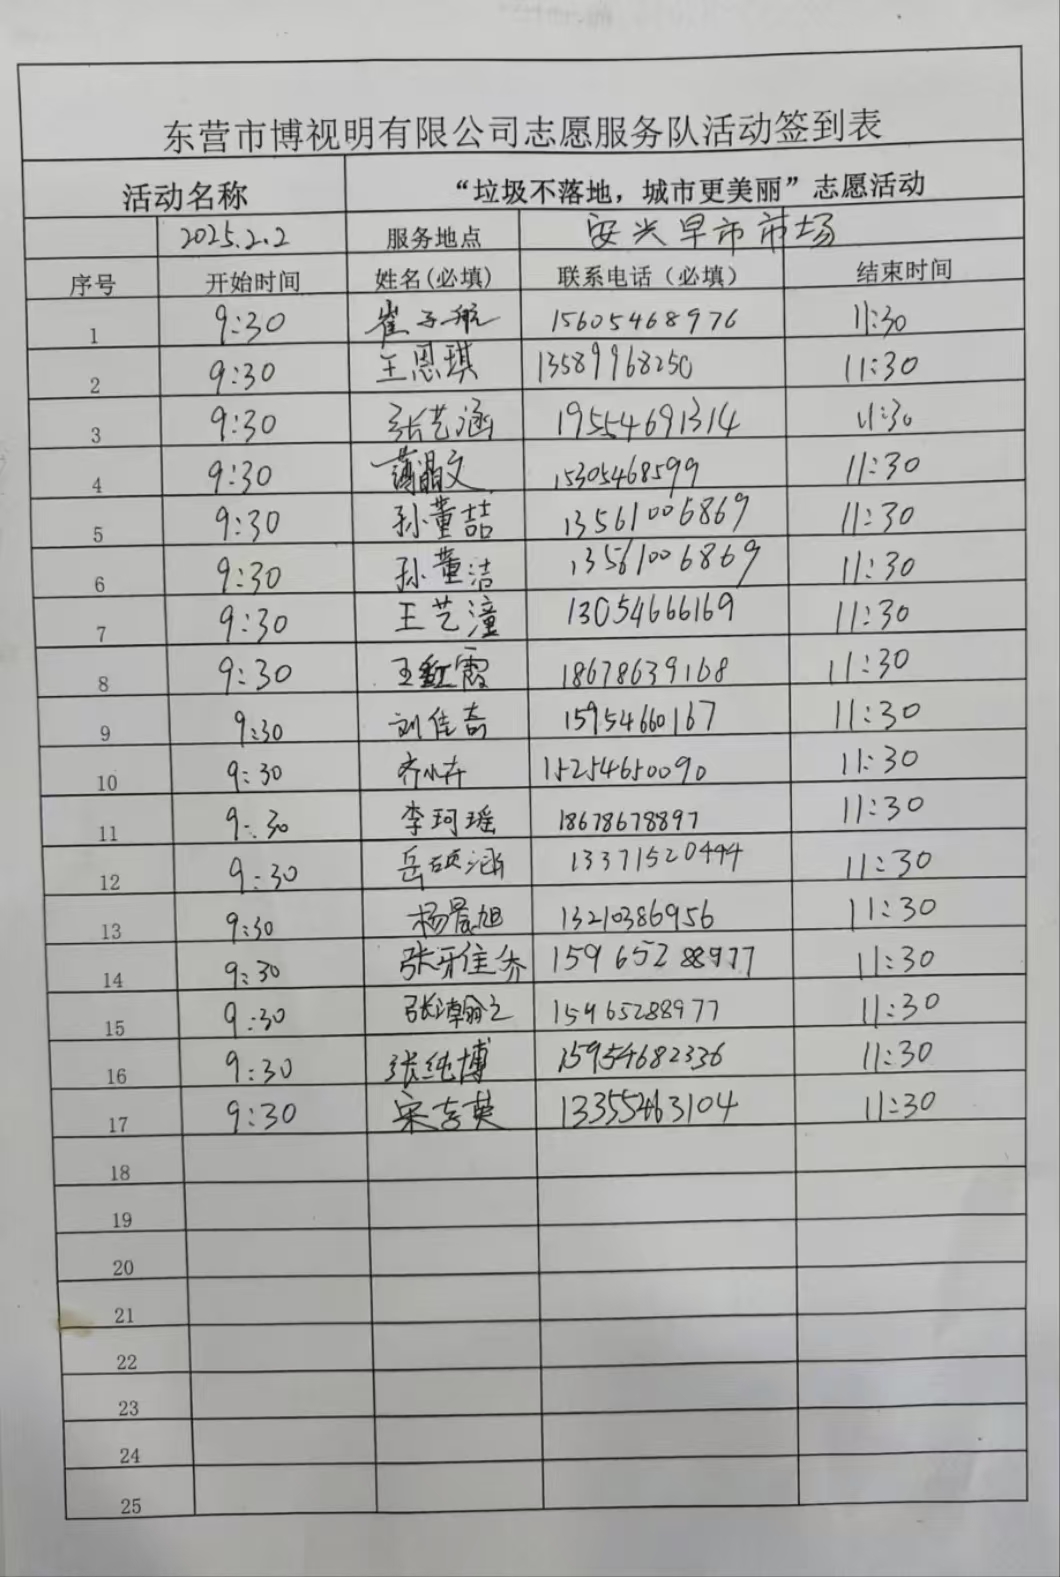 东营市博视明有限公司志愿服务队活动签到表
活动名称 “垃圾不落地，城市更美丽”志愿活动
2025.2.2 服务地点 安兴早市市场
序号 开始时间 姓名(必填) 联系电话（必填） 结束时间
1 9:30 崔子航 15605468976 11:30
2 9:30 王恩琪 13589968250 11:30
3 9:30 张艺涵 19554691314 11:30
4 9:30 晶文 15305468599 11:30
5 9:30 孙董喆 13561006869 11:30
6 9:30 孙董洁 13561006869 11:30
7 9:30 王艺潼 13054666169 11:30
8 9:30 王红霞 18678639168 11:30
9 9:30 刘佳奇 15954660167 11:30
10 9:30 齐小卉 15254650090 11:30
11 9:30 李珂瑶 18678678897 11:30
12 9:30 岳硕涵 13371520444 11:30
13 9:30 杨晨旭 13210386956 11:30
14 9:30 张牙佳乔 15965288977 11:30
15 9:30 张瀚之 15965288977 11:30
16 9:30 张纯博 15954682336 11:30
17 9:30 宋吉英 13355463104 11:30
18
19
20
21
22
23
24
25